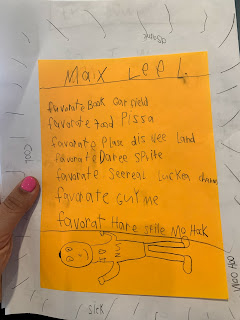 Max Lee L.
favorate Book Garfield
favorate food Pissa
favorate Plase disnee Land
favorate Daree sprite
favorate Seereal Luckea charms
favorate
favorat Hare stile Mo Hak
Cool
Sick
Woo Hoo